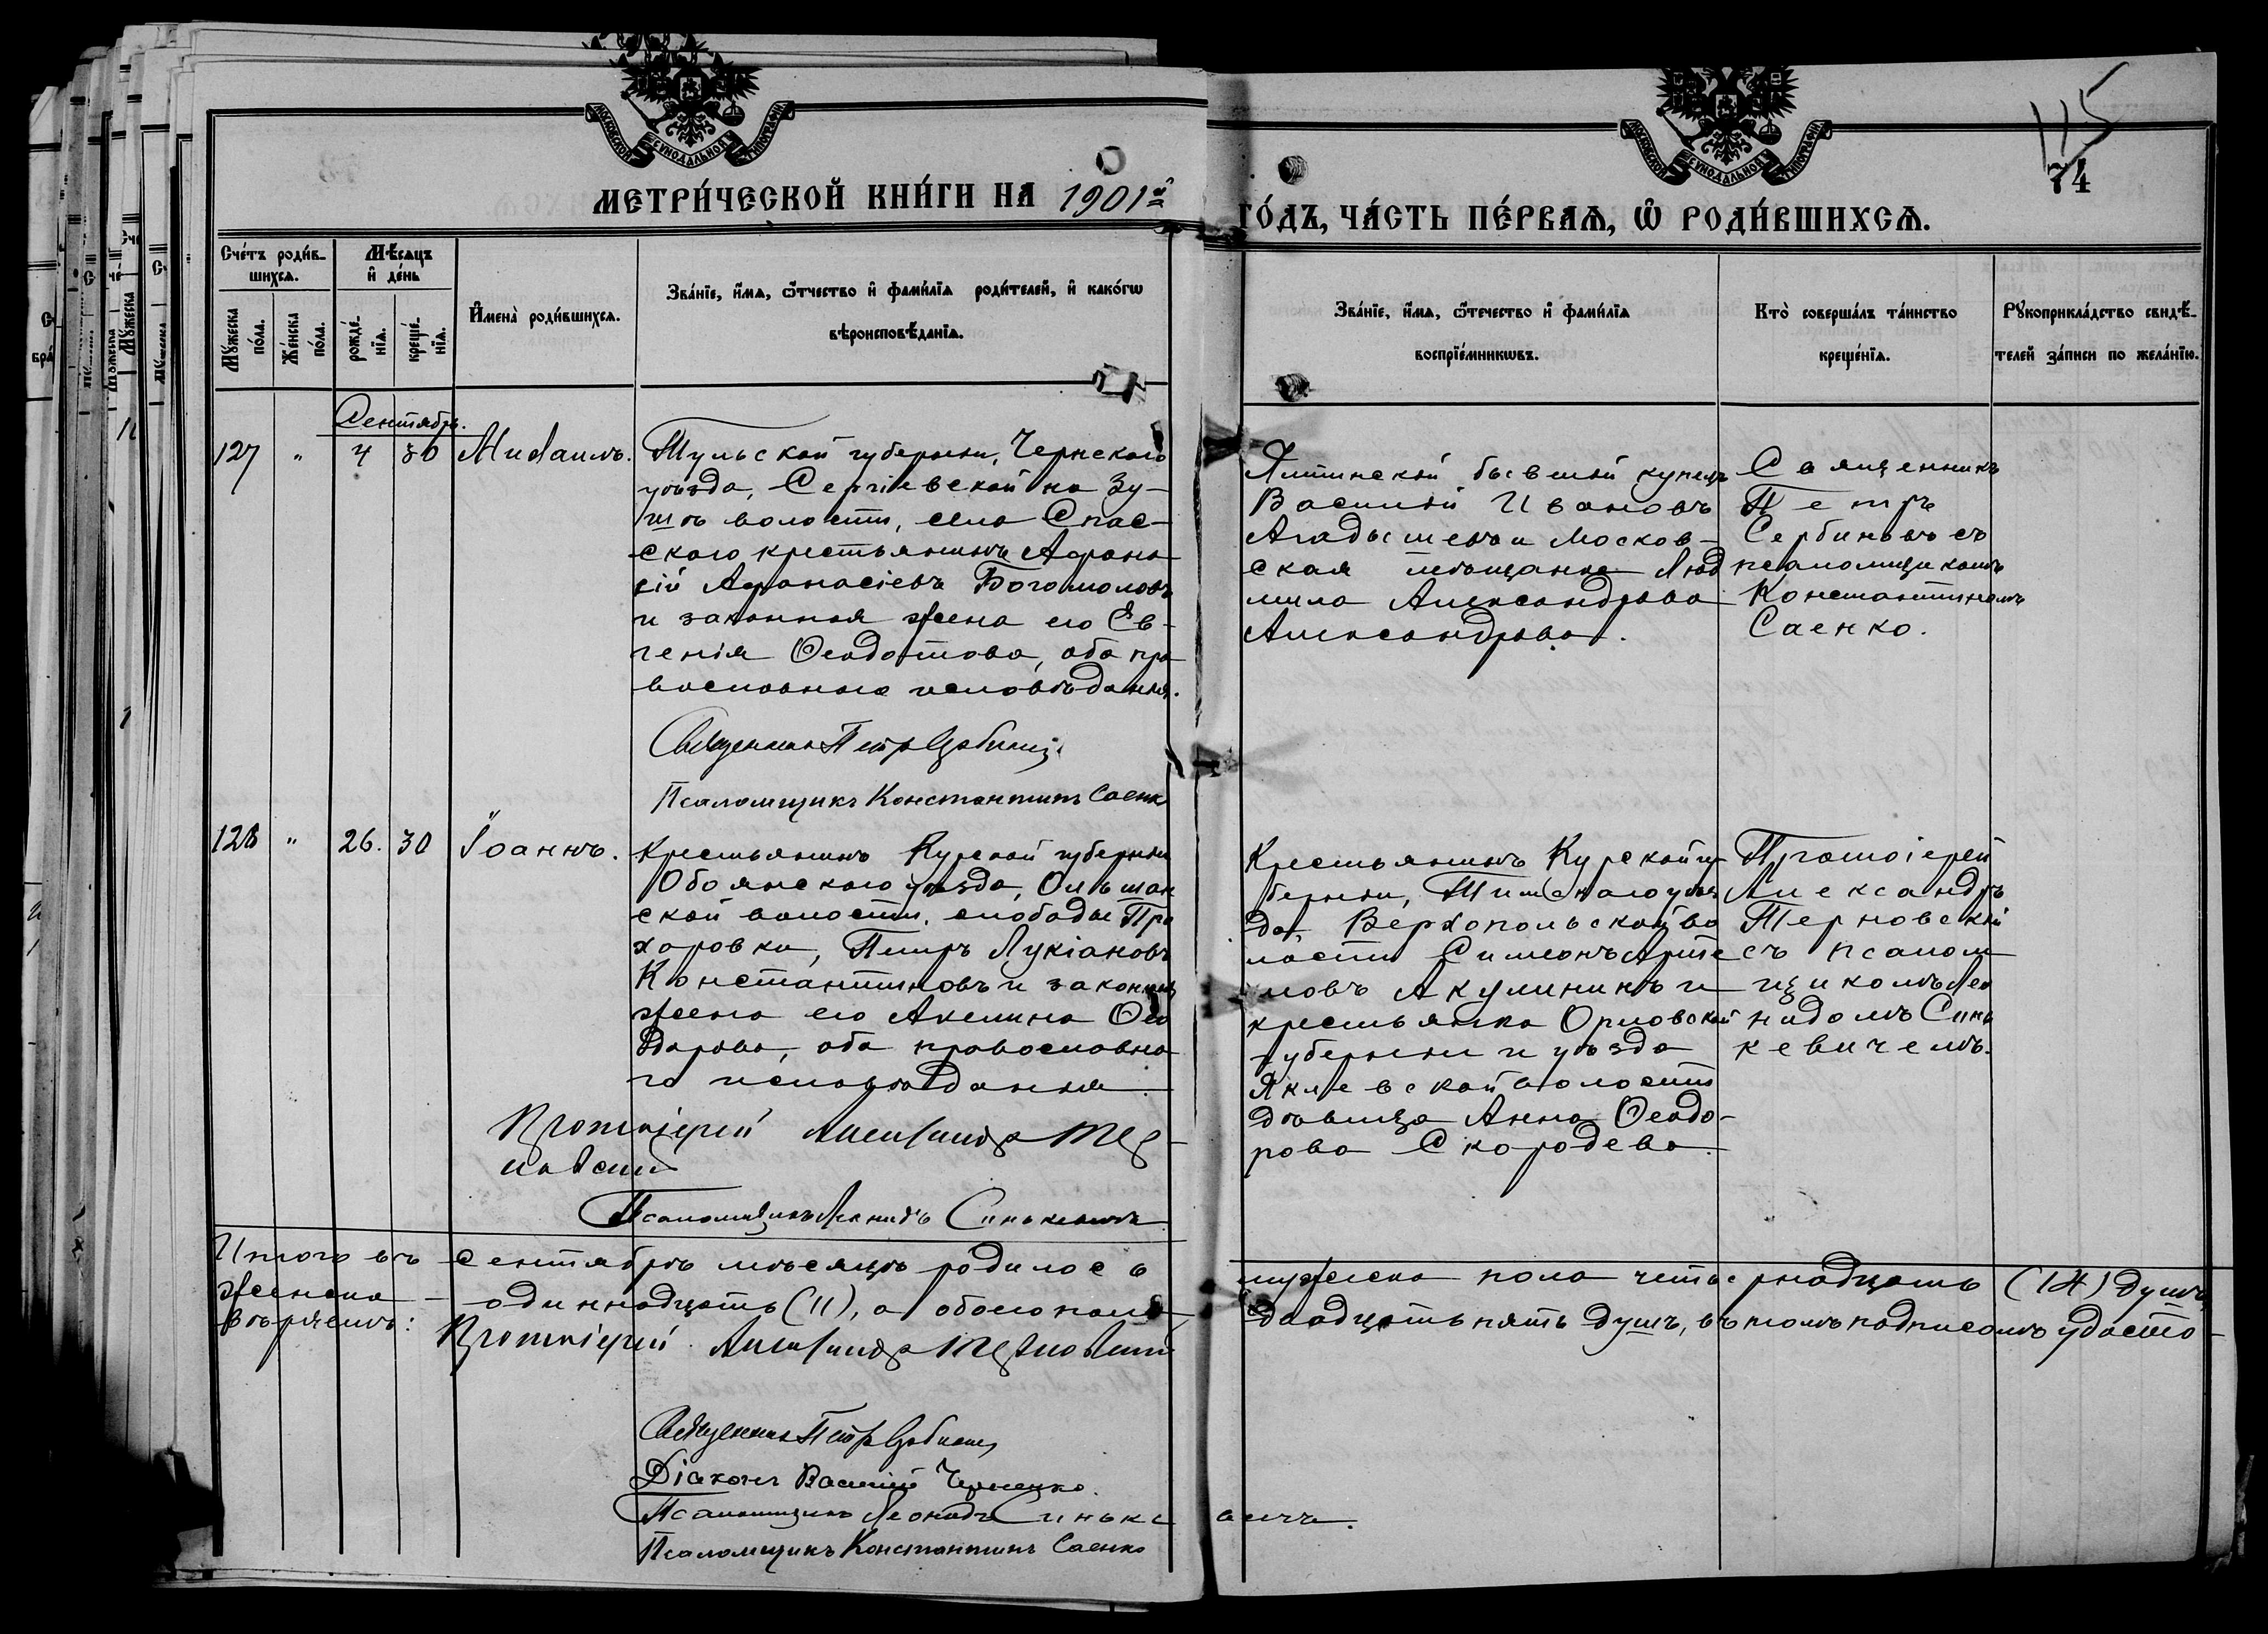 115
74
МОСКОВСКОЙ СѴНОДАЛЬНОЙ ТИПОГРАФІИ
МОСКОВСКОЙ СѴНОДАЛЬНОЙ ТИПОГРАФІИ
МЕТРИ́ЧЕСКОЙ КНИ́ГИ НА 1901й
ГО́ДЪ, ЧА́СТЬ ПЕ́РВАѦ, Ѿ РОДИ́ВШИХСѦ.
Сче́тъ роди́в-
шихсѧ.
Мꙋ́жеска
по́ла.
Же́нска
по́ла.
Мѣ́сѧцъ
и҆ де́нь
рожде́-
нїѧ.
креще́-
нїѧ.
И҆мена̀ роди́вшихсѧ.
Зва́нїе, и҆́мѧ, ѻ҆́тчество и҆ фами́лїѧ роди́телей, и҆ како́гѡ
вѣроисповѣ́данїѧ.
Зва́нїе, и҆́мѧ, ѻ҆́течество и҆ фами́лїѧ
воспрїе́мникѡвъ.
Кто̀ соверша́лъ та́инство
креще́нїѧ.
Рꙋкоприкла́дство свидѣ́-
телей за́писи по жела́нїю.
Сентябрь.
127 " 4 30 Михаилъ.
Тульской губерніи, Чернскаго
уѣзда, Сергіевской на Зу-
шѣ волости, села Спас-
скаго крестьянинъ Афана-
сій Афанасіевъ Богомоловъ
и законная жена его Ев-
генія Ѳеодотова, оба пра
вославнаго исповѣданія.
Священникъ Петръ Сербиновъ
Псаломщикъ Константинъ Саенко
Ялтинскій бывшій купецъ
Василій Ивановъ
и Москов-
ская мѣщанка Люд
мила Александрова
Александрова.
Священникъ
Петръ
Сербиновъ съ
псаломщикомъ
Константиномъ
Саенко.
128 " 26. 30 Іоаннъ.
Крестьянинъ Курской губерніи
Обоянскаго уѣзда, Ольшан
ской волости, слободы Про
хоровки, Петръ Лукіановъ
Константиновъ и законная
жена его Акилина Ѳео
дорова, оба православна
го исповѣданія.
Протоіерей Александръ Тер-
новскій
Псаломщикъ Леонидъ Синькевичъ
Крестьянинъ Курской гу-
берніи, Тимскаго уѣз
да, Верхопольской во
лости Симеонъ Арте
мовъ Акулининъ и
крестьянка Орловской
губерніи и уѣзда
волости
дѣвица Анна Ѳеодо-
рова Скородева.
Протоіерей
Александръ
Терновскій
съ псалом
щикомъ Лео
нидомъ Синь
кевичемъ.
Итого въ сентябрѣ мѣсяцѣ родилось мужеска пола четырнадцать (14) душъ,
женска — одиннадцать (11), а обоего пола двадцать пять душъ, въ томъ подписомъ удосто-
вѣряемъ:
Протоіерей Александръ Терновскій
Священникъ Петръ Сербиновъ
Діаконъ Василій Черненко.
Псаломщикъ Леонидъ Синькевичъ.
Псаломщикъ Константинъ Саенко